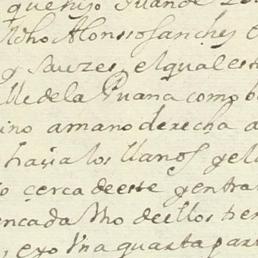 que hijo Juan de
dho Alonso sanches
y sauzes, el qual est
lle de la Puana como b
ino a mano derecha a
hazia los llanos y el
cerca de este y entra
encada Vno de ellos ten
, exo Vna quarta par